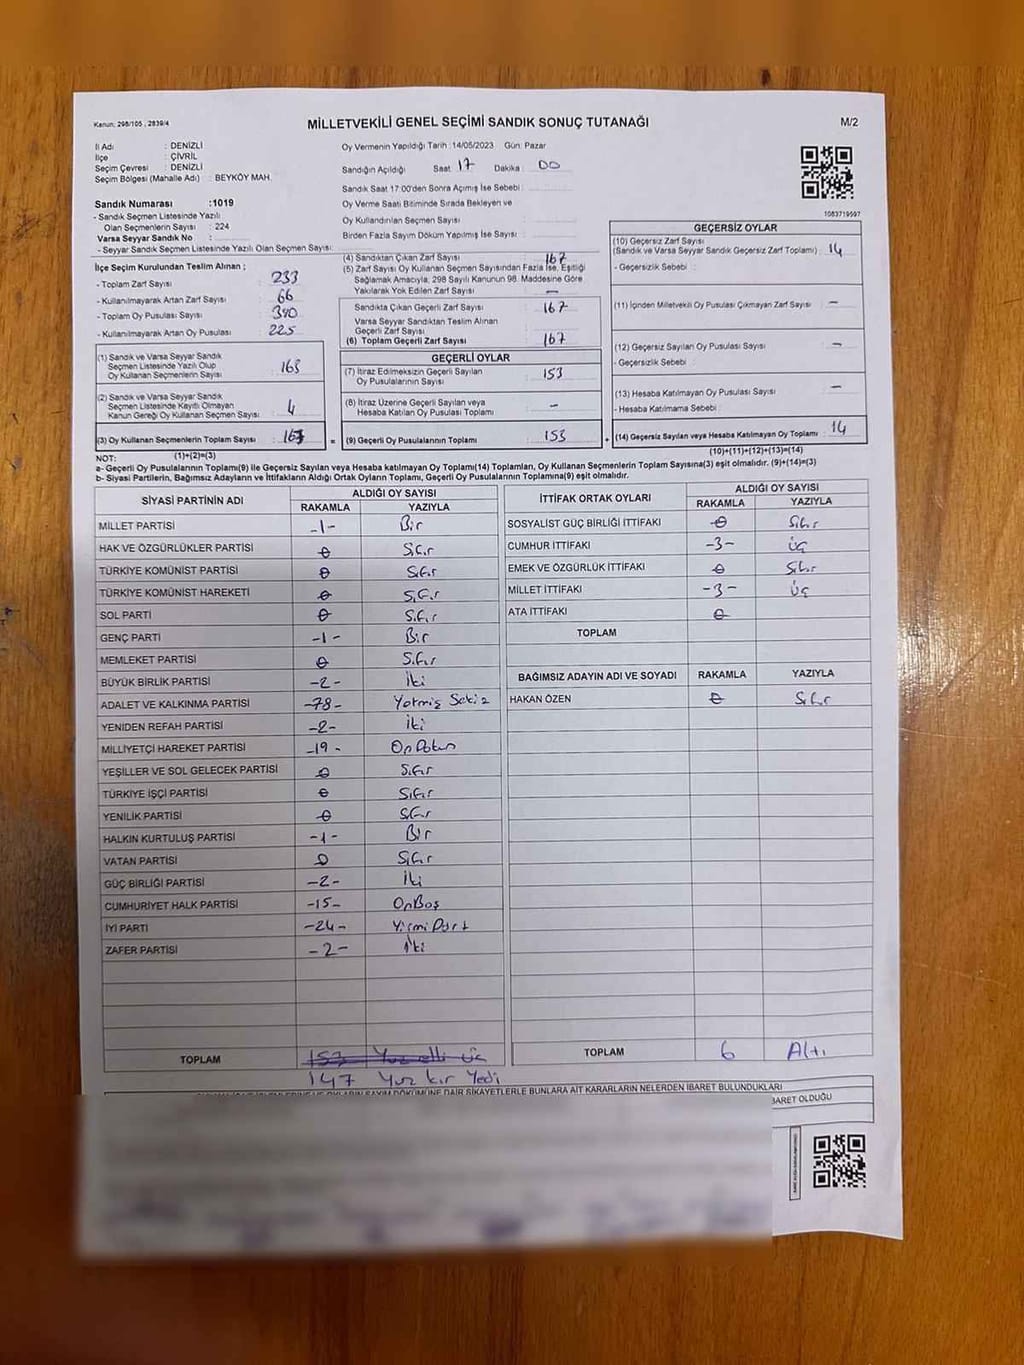 Kanun: 298/105 , 2839/4
MİLLETVEKİLİ GENEL SEÇİMİ SANDIK SONUÇ TUTANAĞI
M/2
İl Adı : DENİZLİ
İlçe : ÇİVRİL
Seçim Çevresi : DENİZLİ
Seçim Bölgesi (Mahalle Adı) : BEYKÖY MAH.
Sandık Numarası :1019
- Sandık Seçmen Listesinde Yazılı
Olan Seçmenlerin Sayısı : 224
Varsa Seyyar Sandık No :
- Seyyar Sandık Seçmen Listesinde Yazılı Olan Seçmen Sayısı:
Oy Vermenin Yapıldığı Tarih :14/05/2023 Gün: Pazar
Sandığın Açıldığı Saat : 17 Dakika : 00
Sandık Saat 17:00'den Sonra Açımış İse Sebebi :
Oy Verme Saati Bitiminde Sırada Bekleyen ve
Oy Kullandırılan Seçmen Sayısı :
Birden Fazla Sayım Döküm Yapılmış İse Sayısı :
1083719597
İlçe Seçim Kurulundan Teslim Alınan ;
- Toplam Zarf Sayısı : 233
- Kullanılmayarak Artan Zarf Sayısı : 66
- Toplam Oy Pusulası Sayısı : 390
- Kullanılmayarak Artan Oy Pusulası : 225
(1) Sandık ve Varsa Seyyar Sandık
Seçmen Listesinde Yazılı Olup
Oy Kullanan Seçmenlerin Sayısı : 163
(2) Sandık ve Varsa Seyyar Sandık
Seçmen Listesinde Kayıtlı Olmayan
Kanun Gereği Oy Kullanan Seçmen Sayısı : 4
(3) Oy Kullanan Seçmenlerin Toplam Sayısı : 167
(1)+(2)=(3)
(4) Sandıktan Çıkan Zarf Sayısı : 167
(5) Zarf Sayısı Oy Kullanan Seçmen Sayısından Fazla İse, Eşitliği
Sağlamak Amacıyla, 298 Sayılı Kanunun 98. Maddesine Göre
Yakılarak Yok Edilen Zarf Sayısı : —
Sandıkta Çıkan Geçerli Zarf Sayısı : 167
Varsa Seyyar Sandıktan Teslim Alınan
Geçerli Zarf Sayısı :
(6) Toplam Geçerli Zarf Sayısı : 167
=
GEÇERLİ OYLAR
(7) İtiraz Edilmeksizin Geçerli Sayılan
Oy Pusulalarının Sayısı : 153
(8) İtiraz Üzerine Geçerli Sayılan veya
Hesaba Katılan Oy Pusulası Toplamı : —
(9) Geçerli Oy Pusulalarının Toplamı : 153
+
GEÇERSİZ OYLAR
(10) Geçersiz Zarf Sayısı
(Sandık ve Varsa Seyyar Sandık Geçersiz Zarf Toplamı) : 14
- Geçersizlik Sebebi :
(11) İçinden Milletvekili Oy Pusulası Çıkmayan Zarf Sayısı : —
(12) Geçersiz Sayılan Oy Pusulası Sayısı : —
- Geçersizlik Sebebi :
(13) Hesaba Katılmayan Oy Pusulası Sayısı : —
- Hesaba Katılmama Sebebi :
(14) Geçersiz Sayılan veya Hesaba Katılmayan Oy Toplamı : 14
(10)+(11)+(12)+(13)=(14)
NOT:
a- Geçerli Oy Pusulalarının Toplamı(9) ile Geçersiz Sayılan veya Hesaba katılmayan Oy Toplamı(14) Toplamları, Oy Kullanan Seçmenlerin Toplam Sayısına(3) eşit olmalıdır. (9)+(14)=(3)
b- Siyasi Partilerin, Bağımsız Adayların ve İttifakların Aldığı Ortak Oyların Toplamı, Geçerli Oy Pusulalarının Toplamına(9) eşit olmalıdır.
SİYASİ PARTİNİN ADI ALDIĞI OY SAYISI
RAKAMLA YAZIYLA
MİLLET PARTİSİ -1- Bir
HAK VE ÖZGÜRLÜKLER PARTİSİ 0 Sıfır
TÜRKİYE KOMÜNİST PARTİSİ 0 Sıfır
TÜRKİYE KOMÜNİST HAREKETİ 0 Sıfır
SOL PARTİ 0 Sıfır
GENÇ PARTİ -1- Bir
MEMLEKET PARTİSİ 0 Sıfır
BÜYÜK BİRLİK PARTİSİ -2- İki
ADALET VE KALKINMA PARTİSİ -78- Yetmiş Sekiz
YENİDEN REFAH PARTİSİ -2- İki
MİLLİYETÇİ HAREKET PARTİSİ -19- OnDokuz
YEŞİLLER VE SOL GELECEK PARTİSİ 0 Sıfır
TÜRKİYE İŞÇİ PARTİSİ 0 Sıfır
YENİLİK PARTİSİ 0 Sıfır
HALKIN KURTULUŞ PARTİSİ -1- Bir
VATAN PARTİSİ 0 Sıfır
GÜÇ BİRLİĞİ PARTİSİ -2- İki
CUMHURİYET HALK PARTİSİ -15- OnBeş
İYİ PARTİ -24- Yirmi Dört
ZAFER PARTİSİ -2- İki
TOPLAM 153 Yüz elli üç
147 Yüz kır Yedi
İTTİFAK ORTAK OYLARI ALDIĞI OY SAYISI
RAKAMLA YAZIYLA
SOSYALİST GÜÇ BİRLİĞİ İTTİFAKI 0 Sıfır
CUMHUR İTTİFAKI -3- üç
EMEK VE ÖZGÜRLÜK İTTİFAKI 0 Sıfır
MİLLET İTTİFAKI -3- üç
ATA İTTİFAKI 0
TOPLAM
BAĞIMSIZ ADAYIN ADI VE SOYADI RAKAMLA YAZIYLA
HAKAN ÖZEN 0 Sıfır
TOPLAM 6 Altı
DÖKÜMÜNE DAİR ŞİKAYETLERLE BUNLARA AİT KARARLARIN NELERDEN İBARET BULUNDUKLARI
BARET OLDUĞU